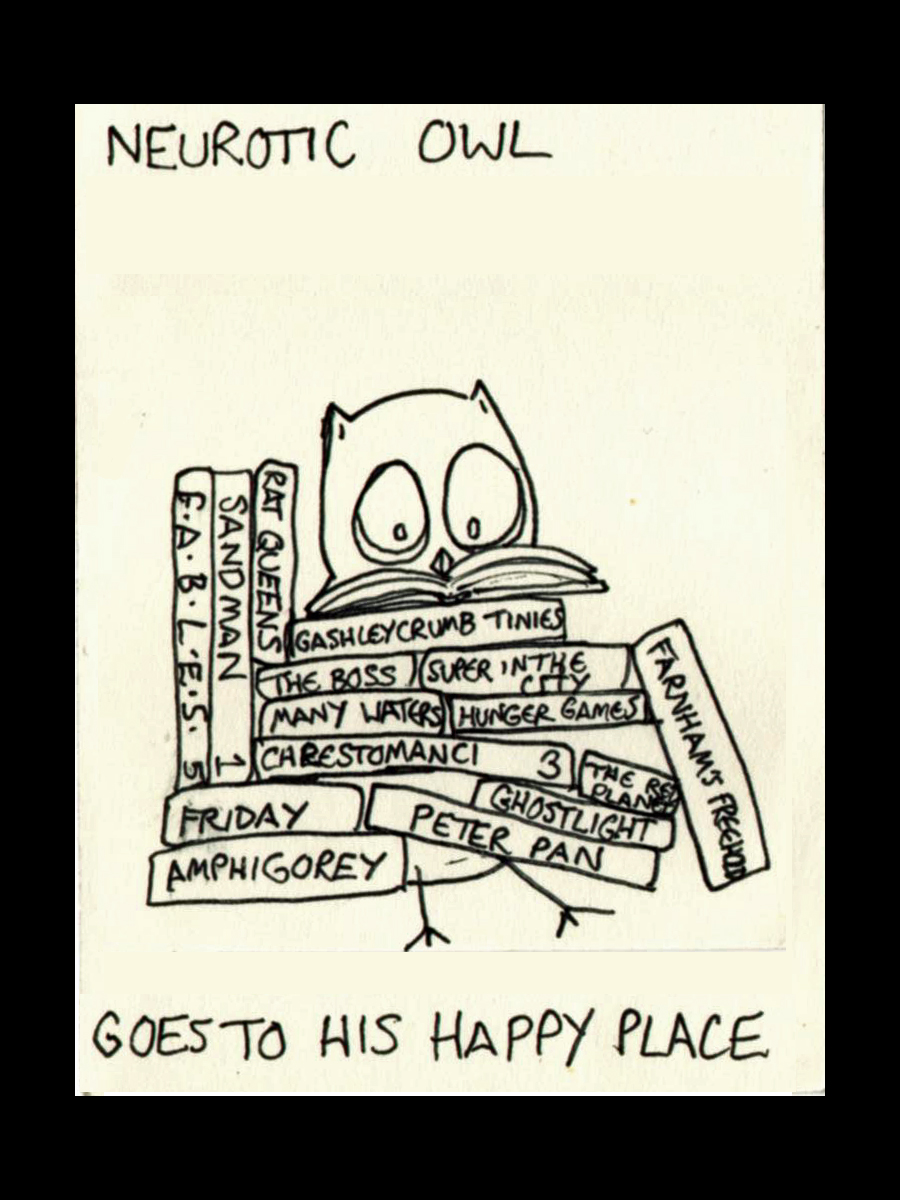 NEUROTIC OWL
F.A.B.L.E.S. 5
SANDMAN 1
RAT QUEENS
GASHLEYCRUMB TINIES
THE BOSS
SUPER IN THE
CITY
MANY WATERS
HUNGER GAMES
CHRESTOMANCI 3
THE RED
PLANET
FARNHAM'S FREEHOLD
FRIDAY
GHOSTLIGHT
PETER PAN
AMPHIGOREY
GOES TO HIS HAPPY PLACE